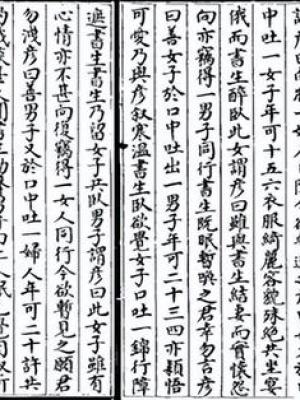 中吐一女子年可十五六衣服綺麗容貌殊絶共坐宴
俄而書生醉臥此女謂彥曰雖與書生結妻而實懷怨
向亦竊得一男子同行書生既眠暫喚之君幸勿言彥
曰善女子於口中吐出一男子年可二十三四亦穎悟
可愛乃與彥叙寒溫書生臥欲覺女子口吐一錦行障
遮書生書生乃詔女子共臥男子謂彥曰此女子雖有
心情亦不甚向復竊得一女人同行今欲暫見之願君
勿洩彥曰善男子又於口中吐一婦人年可二十許共